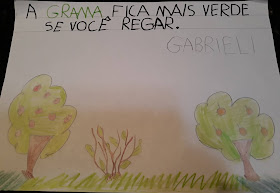 A GRAMA FICA MAIS VERDE
SE VOCÊ REGAR.
GABRIELI